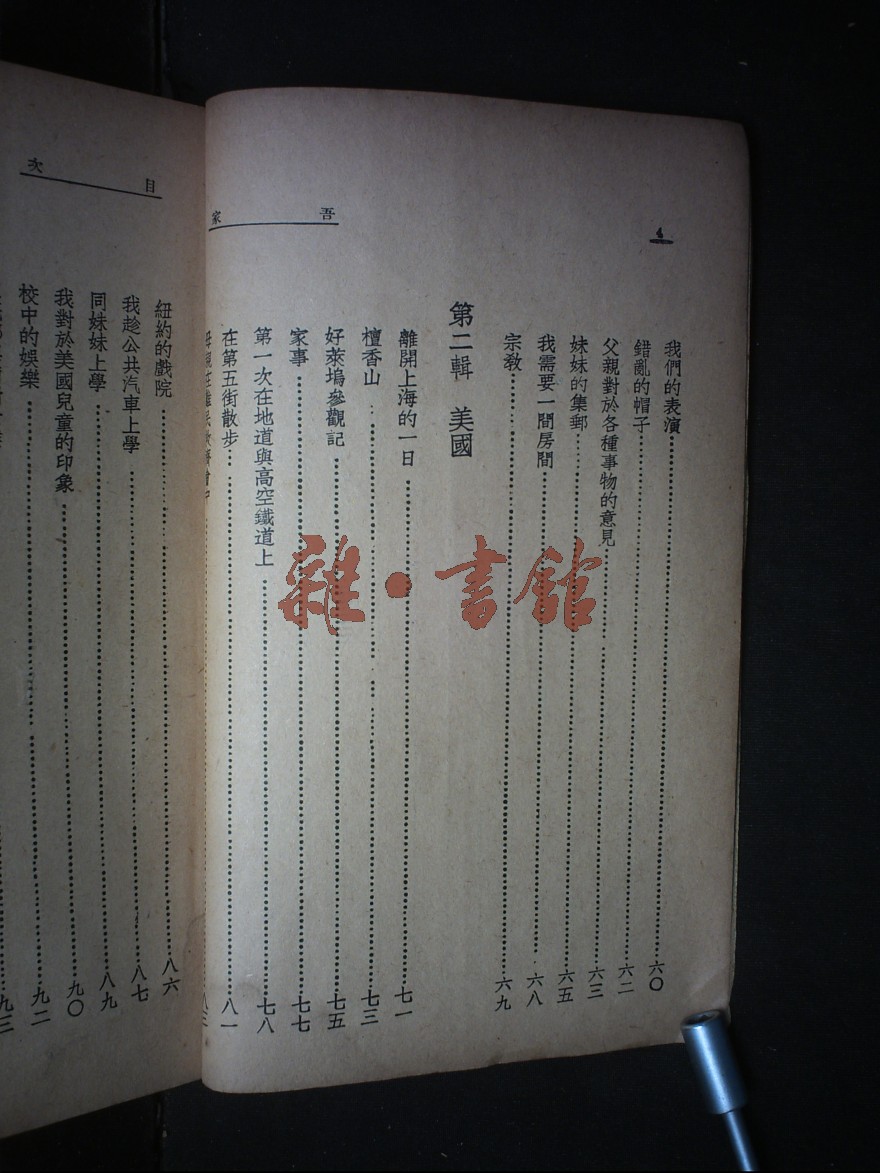 4
吾家
我們的表演 六〇
錯亂的帽子 六二
父親對於各種事物的意見 六三
妹妹的集郵 六五
我需要一間房間 六八
宗教 六九
第二輯 美國
離開上海的一日 七一
檀香山 七三
好萊塢參觀記 七五
家事 七七
第一次在地道與高空鐵道上 七八
在第五街散步 八一
目次
紐約的戲院 八六
我趁公共汽車上學 八七
同妹妹上學 八九
我對於美國兒童的印象 九〇
校中的娛樂 九二
九三
雜·書館